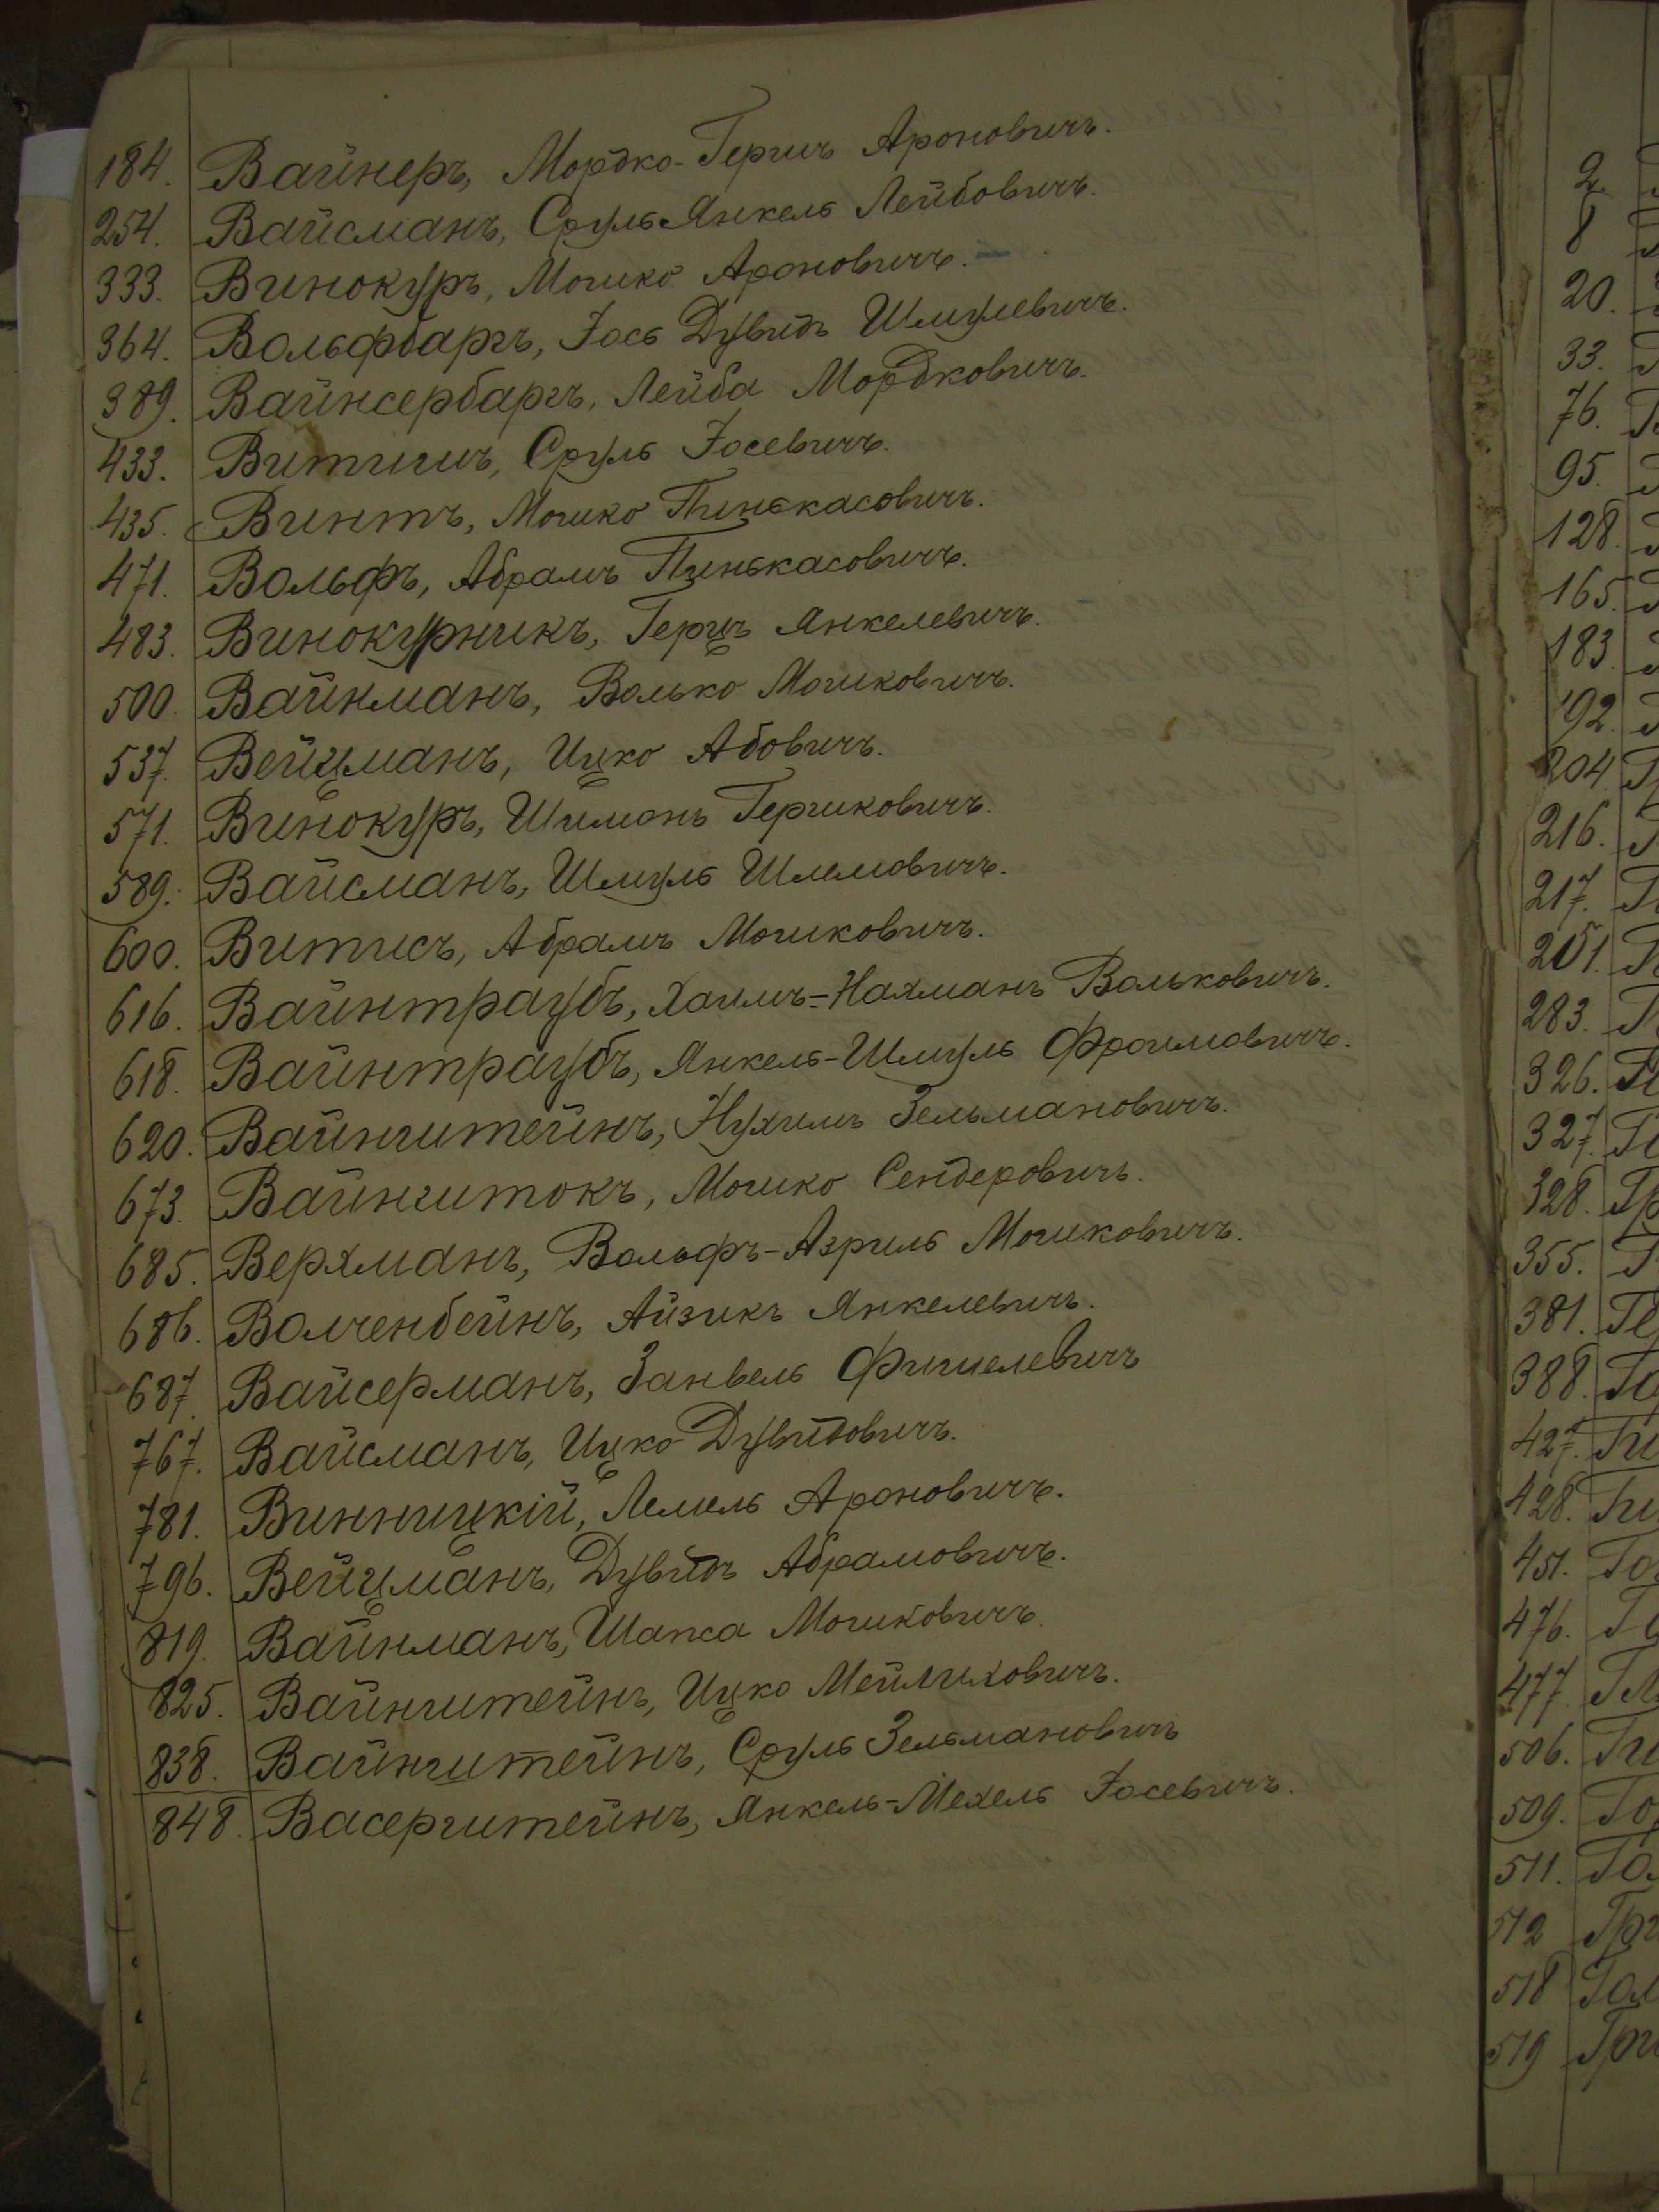 184. Вайнеръ, Мордко-Гершъ Ароновичъ.
254. Вайсманъ, Сруль Янкель Лейбовичъ.
333. Винокуръ, Мошко Ароновичъ.
364. Вольфбаргъ, Іось Дувидъ Шмулевичъ.
389. Вайнсербаргъ, Лейба Мордковичъ.
433. Витишъ, Сруль Іосевичъ.
435. Винтъ, Мошко Пинькасовичъ.
471. Вольфъ, Абрамъ Пинькасовичъ.
483. Винокурникъ, Герцъ Янкелевичъ.
500. Вайнманъ, Волько Мошковичъ.
537. Вейцманъ, Ицко Абовичъ.
571. Винокуръ, Шимонъ Гершковичъ.
589. Вайсманъ, Шмуль Шлемовичъ.
600. Витисъ, Абрамъ Мошковичъ.
616. Вайнтраубъ, Хаимъ=Нахманъ Вольковичъ.
618. Вайнтраубъ, Янкель-Шмуль Фроимовичъ.
620. Вайнштейнъ, Нухимъ Зельмановичъ.
673. Вайнштокъ, Мошко Сендеровичъ.
685. Верхманъ, Вольфъ-Азриль Мошковичъ.
686. Волченбейнъ, Айзикъ Янкелевичъ.
687. Вайсерманъ, Занвель Фишелевичъ
767. Вайсманъ, Ицко Дувидовичъ.
781. Винницкій, Лемель Ароновичъ.
796. Вейцманъ, Дувидъ Абрамовичъ.
819. Вайнманъ, Шапса Мошковичъ.
825. Вайнштейнъ, Ицко Мейлиховичъ.
838. Вайнштейнъ, Сруль Зельмановичъ
848. Васерштейнъ, Янкель-Мехель Іосевичъ.
2.
8
20.
33.
76.
95.
128.
165.
183.
192.
204.
216.
217.
251.
283.
326.
327.
328.
355.
381.
388.
427.
428.
451.
476.
477.
506.
509.
511.
512
518
519